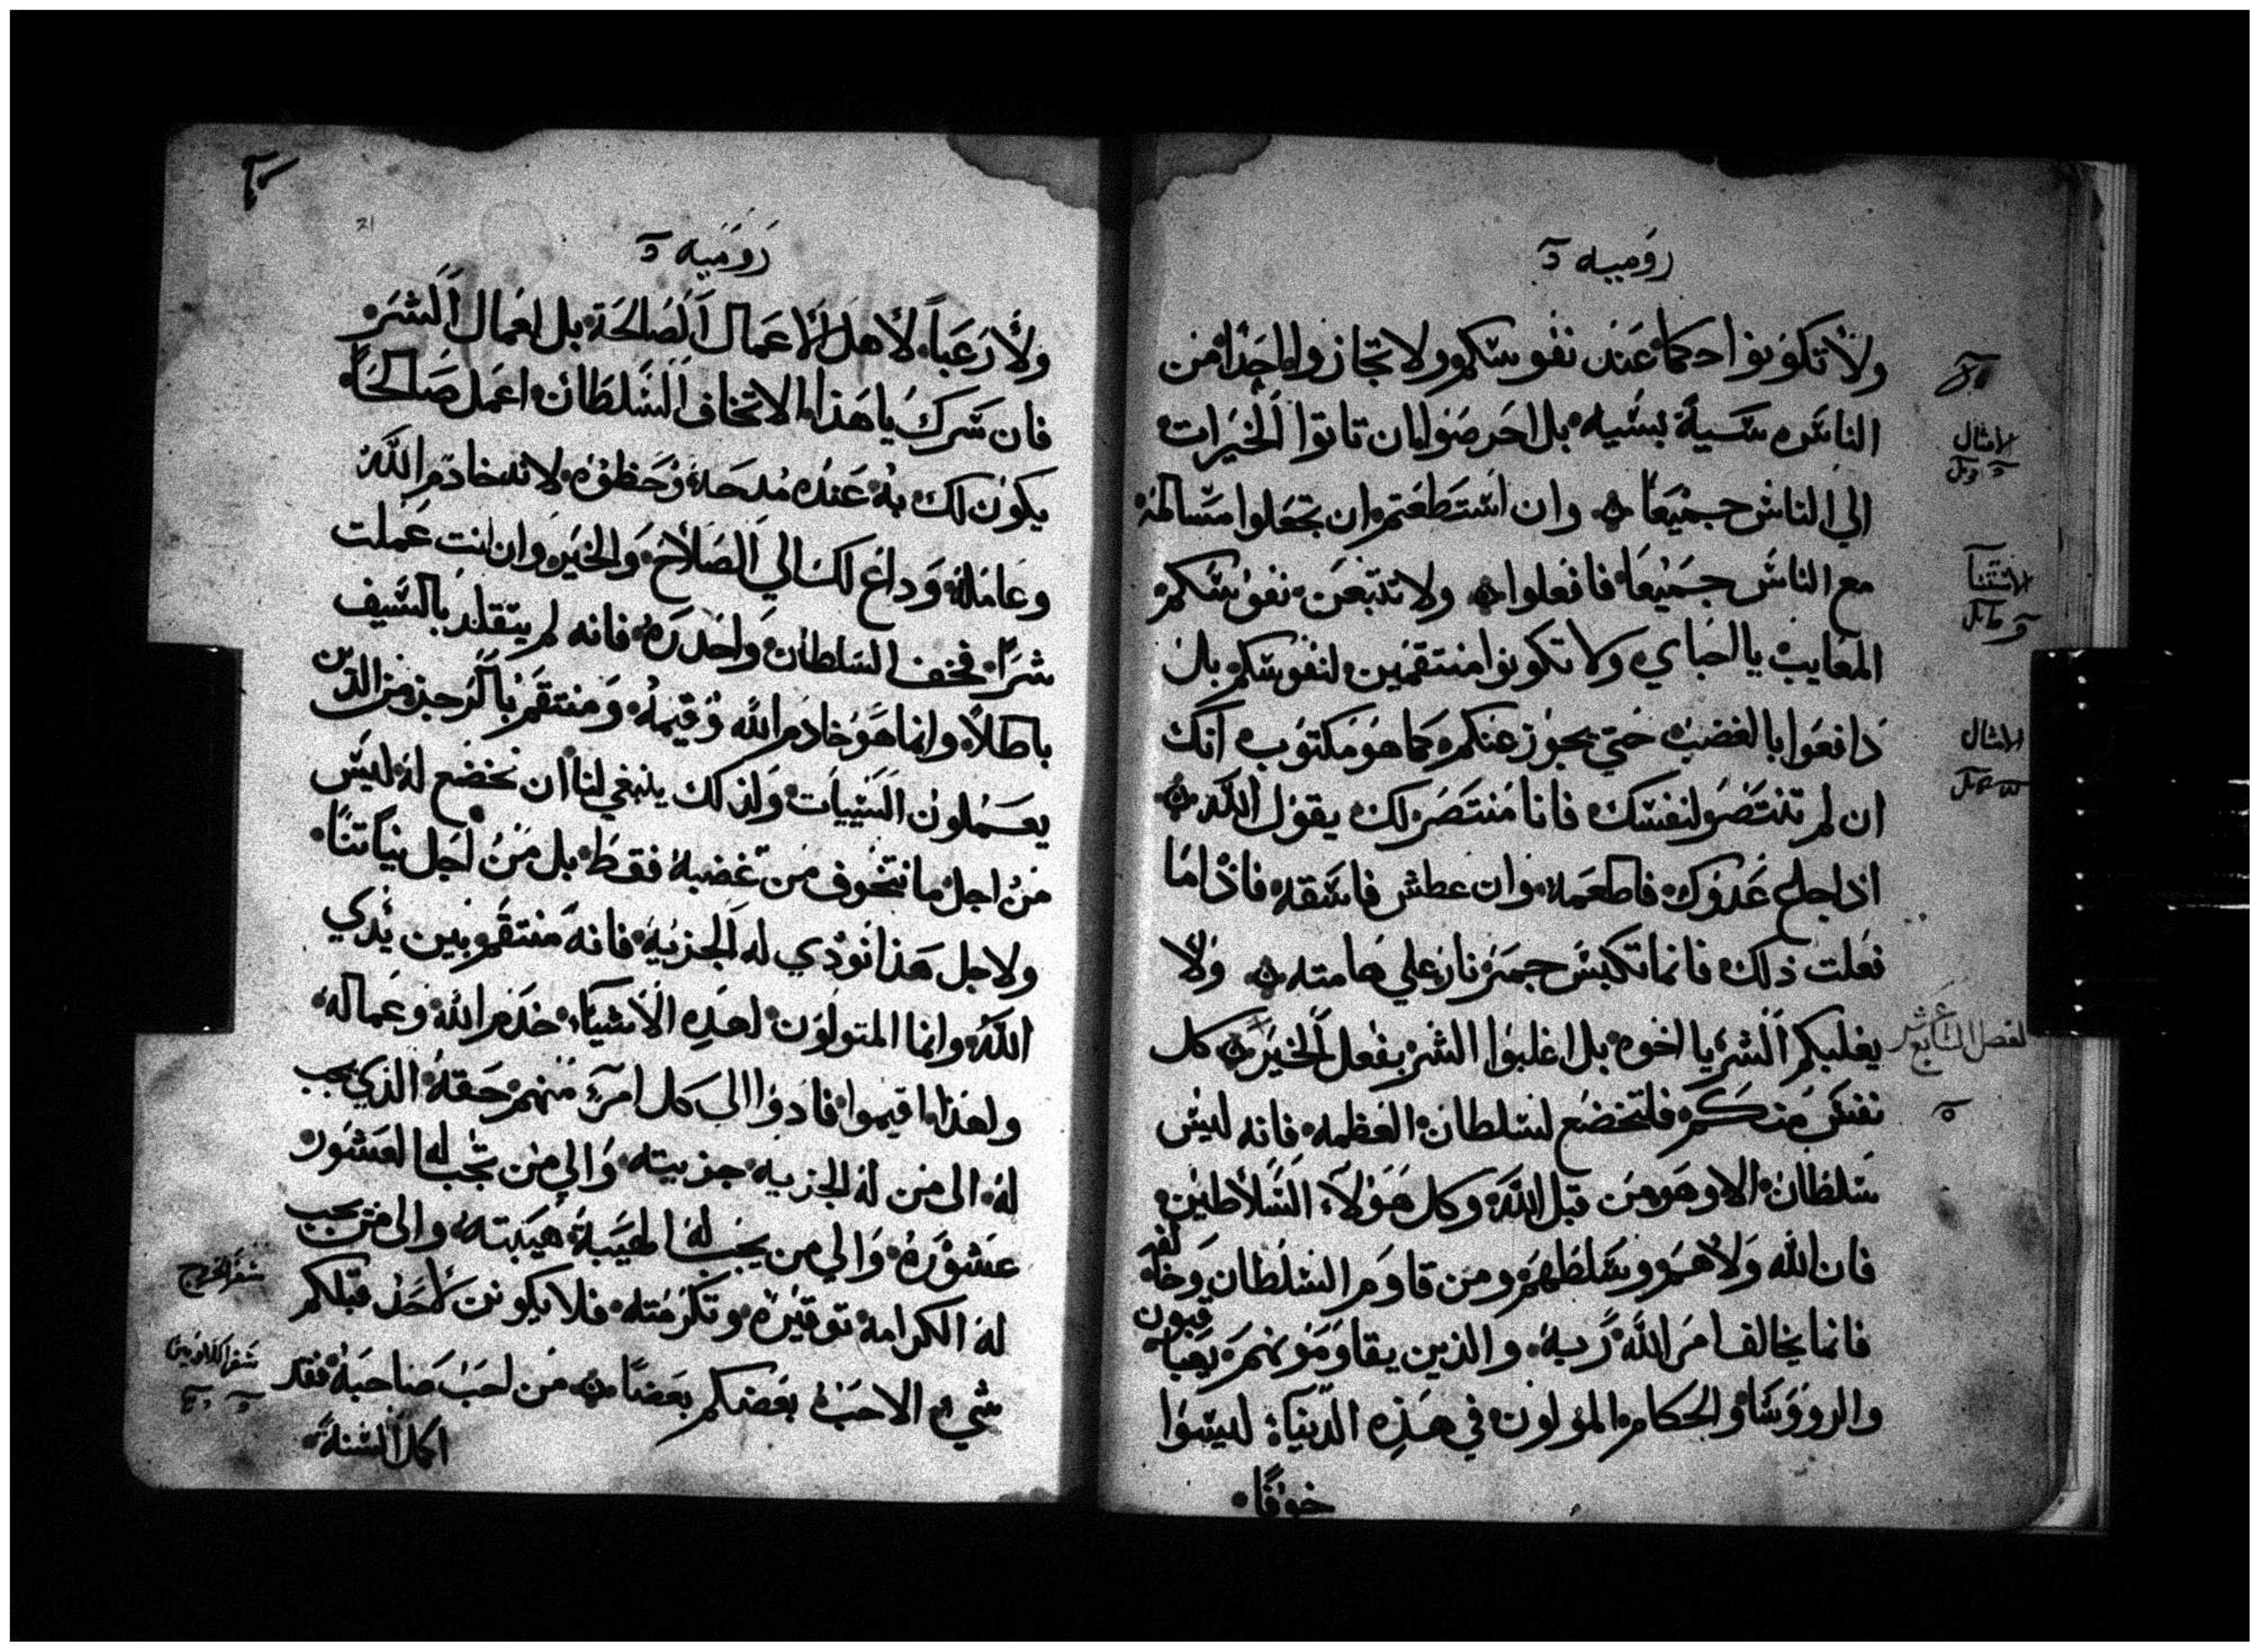 روميه
ولا تكونوا حكما عند نفوسكم ولا تجازوا احدا من
الناس سيية بسييه بل احرصوا ان تاتوا الخيرات
الي الناس جميعا وان استطعتم ان تجعلوا مسالمة
مع الناس جميعا فافعلوا ولا تتبعن نفوسكم
المعايب يا احباي ولا تكونوا منتقمين لنفوسكم بل
دافعوا بالغضب حتي يجوز عنكم كما هو مكتوب انك
ان لم تنتصر لنفسك فانا منتصر لك يقول الله
اذا جاع عدوك فاطعمه وان عطش فاسقه فاذا ما
فعلت ذلك فانما تكبس جمر نار علي هامته ولا
يغلبكم الشر يا اخوه بل اغلبوا الشر بفعل الخير كل
نفس منكم فلتخضع لسلطان العظمه فانه ليس
سلطان الا وهو من قبل الله وكل هولاء السلاطين
فان الله ولاهم وسلطهم ومن قاوم السلطان وخالفه
فانما يخالف امر الله ربه والذين يقاومونهم يعاقبون
والرووسا والحكام المولون في هذه الدنيا ليسوا
خوفا
الامثال
الامثال
الفصل السابع عشر
روميه
21
ولا رعبا لاهل الاعمال الصالحة بل لعمال الشر
فان سرك يا هذا الا تخاف السلطان اعمل صالحا
يكون لك به عنده مدحة وحظوه لانه خادم الله
وعامله وداع لك الي الصلاح والخير وان انت عملت
شرا فخف السلطان واحدره فانه لم يتقلد بالسيف
باطلا وانما هو خادم الله وقيمه ومنتقم بالرجز من الذين
يعملون السييات ولذلك ينبغي لنا ان نخضع له ليس
من اجل ما نتخوف من غضبه فقط بل من اجل نياتنا
ولاجل هذا نودي له الجزيه فانه منتقم بين يدي
الله وانما المتولون لهذه الاشياء خدم الله وعماله
ولهذا اقيموا فادوا الي كل امرء منهم حقه الذي يجب
له الي من له الجزيه جزيته والي من تجب له العشور
عشوره والي من يجب له الهيبة هيبته والي من يجب
له الكرامة توقيره وتكرمته فلا يكونن لاحد قبلكم
شيء الا حب بعضكم بعضا من احب صاحبه فقد
اكمل السنة
سفر الخروج